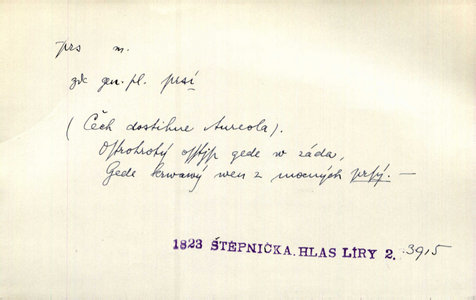 prs m.
zde gen. pl. prsí
(Čech dostihne Aureola).
Ostrohrotý osstjp gede w záda,
Gede krwawý wen z mocných prsý. —
1823 ŠTĚPNIČKA. HLAS LÍRY 2. 39,5